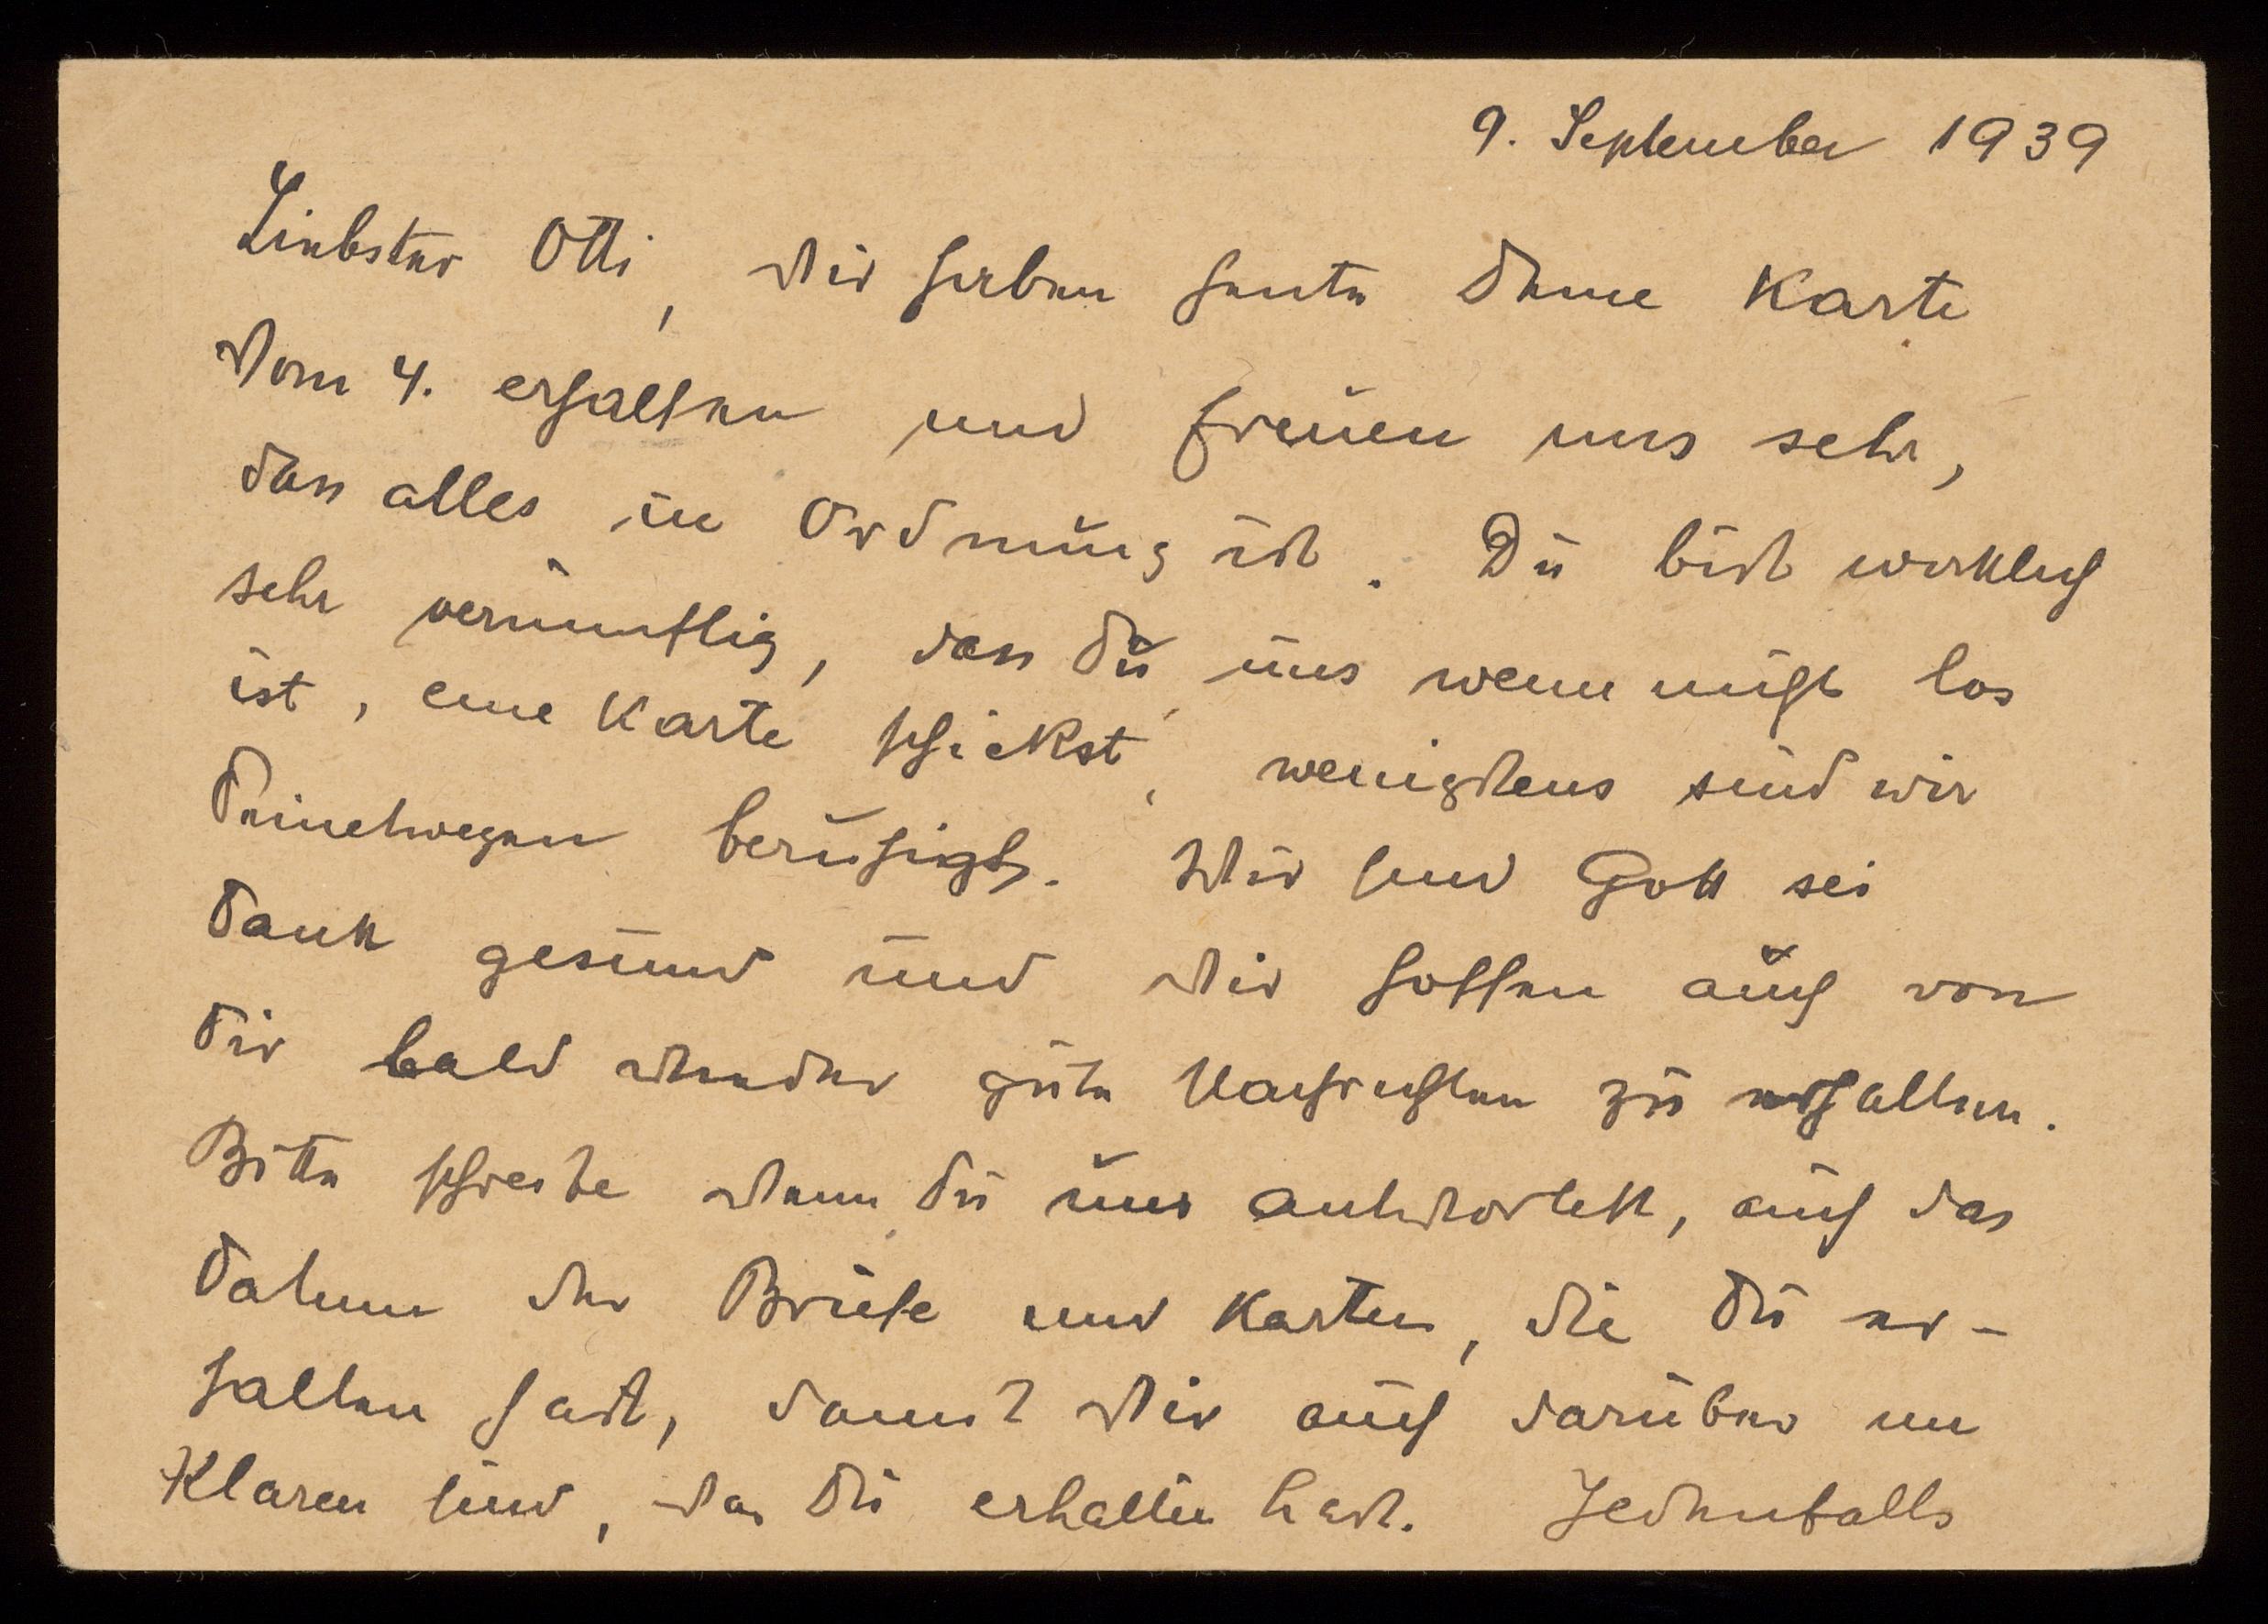 9. September 1939
Liebster Otti, wir haben heute Deine Karte
vom 4. erhalten und freuen uns sehr,
dass alles in Ordnung ist. Du bist wirklich
sehr vernünftig, dass Du uns wenn nicht los
ist, eine Karte schickst, wenigstens sind wir
Deinetwegen beruhigt. Wir sind Gott sei
Dank gesund und wir hoffen auch von
Dir bald wieder gute Nachrichten zu erhalten.
Bitte schreibe wenn Du uns antwortest, auch das
Datum der Briefe und Karten, die Du er-
halten hast, damit wir auch darüber im
Klaren sind, was Du erhalten hast. Jedenfalls